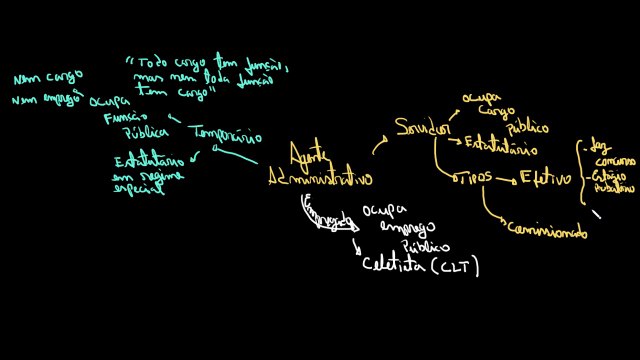 "Todo cargo tem função,
mas nem toda função
tem cargo"
Nem cargo
Nem emprego
Ocupa
Função
Pública
Temporário
Estatutário
em regime
especial
Agente
Administrativo
Servidor
Ocupa
Cargo
Público
Estatutário
Tipos
Efetivo
- faz
concurso
- Estágio
Probatório
Comissionado
Empregado
Ocupa
emprego
Público
Celetista (CLT)